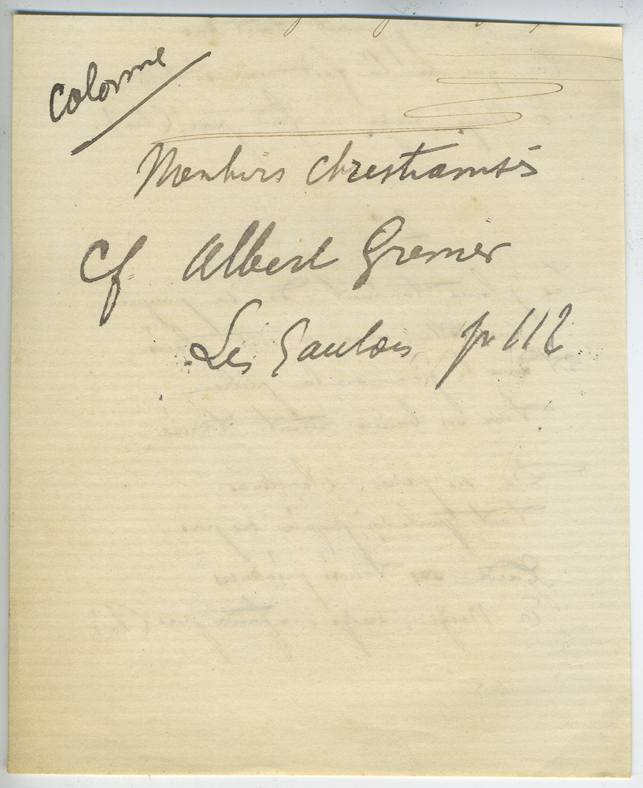 Colonne
Menhirs christianisés
Cf Albert Grenier
Les Gaulois p 112